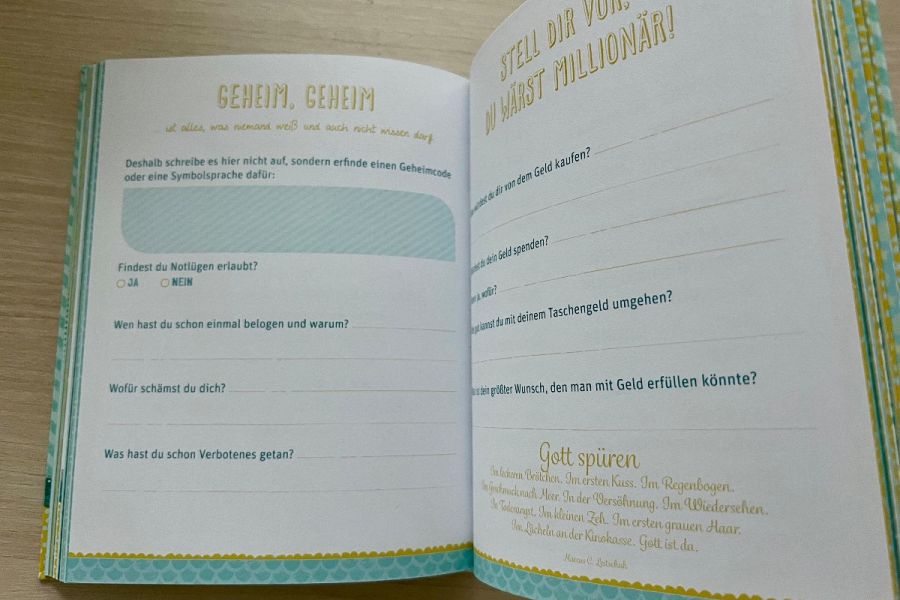 GEHEIM, GEHEIM
... ist alles, was niemand weiß und auch nicht wissen darf
Deshalb schreibe es hier nicht auf, sondern erfinde einen Geheimcode
oder eine Symbolsprache dafür:
Findest du Notlügen erlaubt?
JA NEIN
Wen hast du schon einmal belogen und warum?
Wofür schämst du dich?
Was hast du schon Verbotenes getan?
STELL DIR VOR,
DU WÄRST MILLIONÄR!
du dir von dem Geld kaufen?
du dein Geld spenden?
wofür?
gut kannst du mit deinem Taschengeld umgehen?
ist dein größter Wunsch, den man mit Geld erfüllen könnte?
Gott spüren
Im leckeren Brötchen. Im ersten Kuss. Im Regenbogen.
Im Geschmack nach Meer. In der Versöhnung. Im Wiedersehen.
In Todesangst. Im kleinen Zeh. Im ersten grauen Haar.
Im Lächeln an der Kinokasse. Gott ist da.